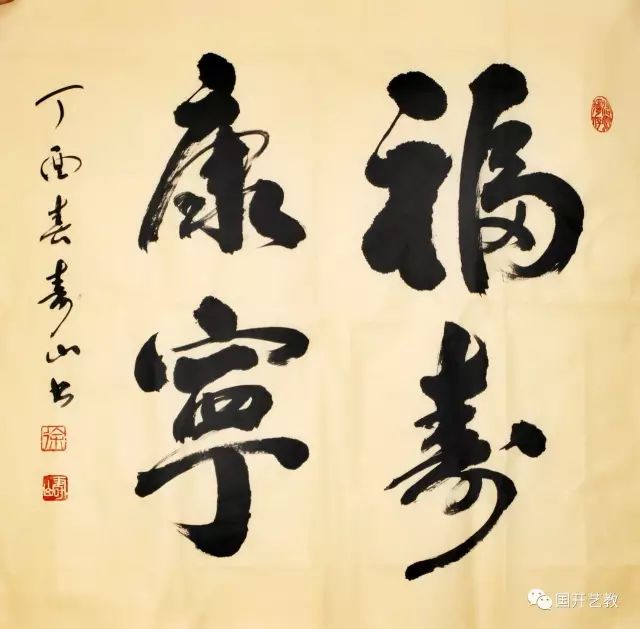 福寿
康寧
丁酉春寿山书
徐
国开艺教